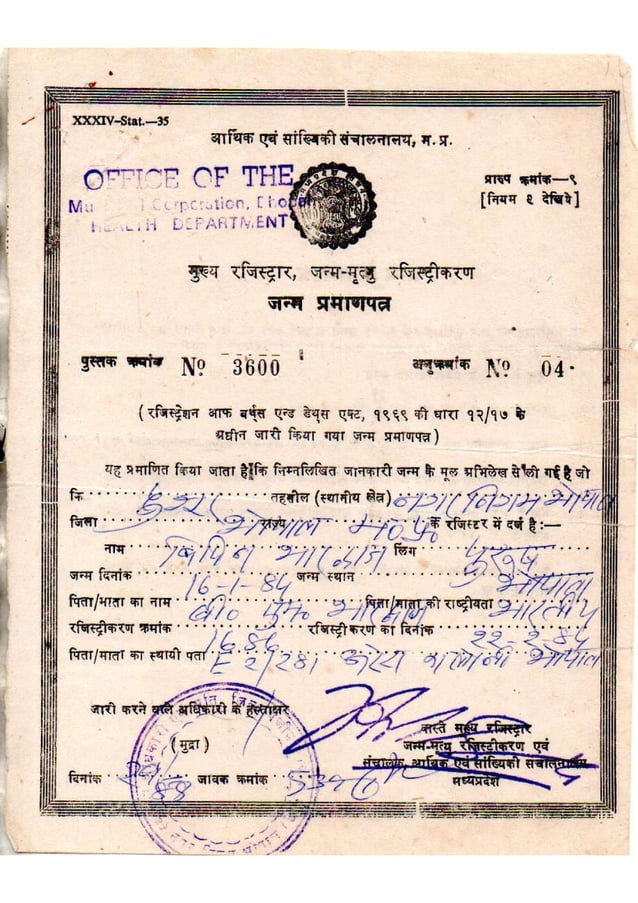 XXXIV-Stat.—35
आर्थिक एवं सांख्यिकी संचालनालय, म. प्र.
OFFICE OF THE
Corporation,
HEALTH DEPARTMENT
प्रारुप क्रमांक—९
[नियम ६ देखिये]
मुख्य रजिस्ट्रार, जन्म-मृत्यु रजिस्ट्रीकरण
जन्म प्रमाणपत्र
पुस्तक क्रमांक № 3600 अनुक्रमांक № 04
( रजिस्ट्रेशन आफ बर्थ्स एन्ड डेथ्स एक्ट, १९६९ की धारा १२/१७ के
अधीन जारी किया गया जन्म प्रमाणपत्र )
यह प्रमाणित किया जाता है कि निम्नलिखित जानकारी जन्म के मूल अभिलेख से ली गई है जो
कि तहसील (स्थानीय क्षेत्र) नगर निगम भोपाल
जिला भोपाल राज्य म०प्र० के रजिस्टर में दर्ज है :—
नाम विपिन भारद्वाज लिंग पुरुष
जन्म दिनांक 16-1-84 जन्म स्थान भोपाल
पिता/माता का नाम पिता/माता की राष्ट्रीयता भारतीय
रजिस्ट्रीकरण क्रमांक रजिस्ट्रीकरण का दिनांक
पिता/माता का स्थायी पता E 2/281 कालोनी भोपाल
जारी करने वाले अधिकारी के हस्ताक्षर
(मुद्रा)
वास्ते मुख्य रजिस्ट्रार
जन्म-मृत्यु रजिस्ट्रीकरण एवं
संचालक, आर्थिक एवं सांख्यिकी संचालनालय
मध्यप्रदेश
दिनांक जावक क्रमांक